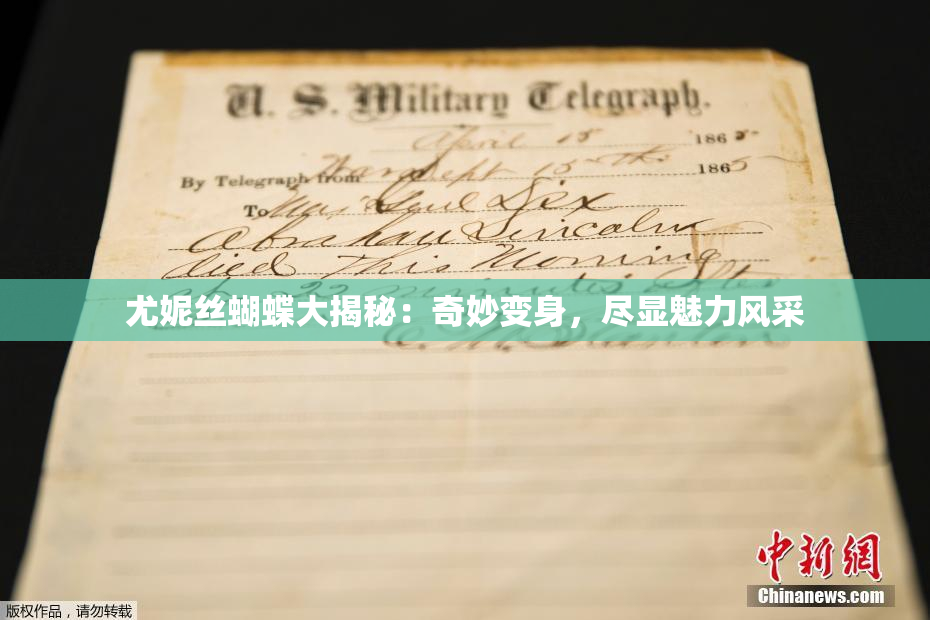 U. S. Military Telegraph.
April 15 1865
By Telegraph from War Dept 15th 1865
To Maj Genl Dix
Abraham Lincoln
died This Morning
22 minutes after
尤妮丝蝴蝶大揭秘：奇妙变身，尽显魅力风采
E. M. Stanton
中新网
Chinanews.com
版权作品，请勿转载